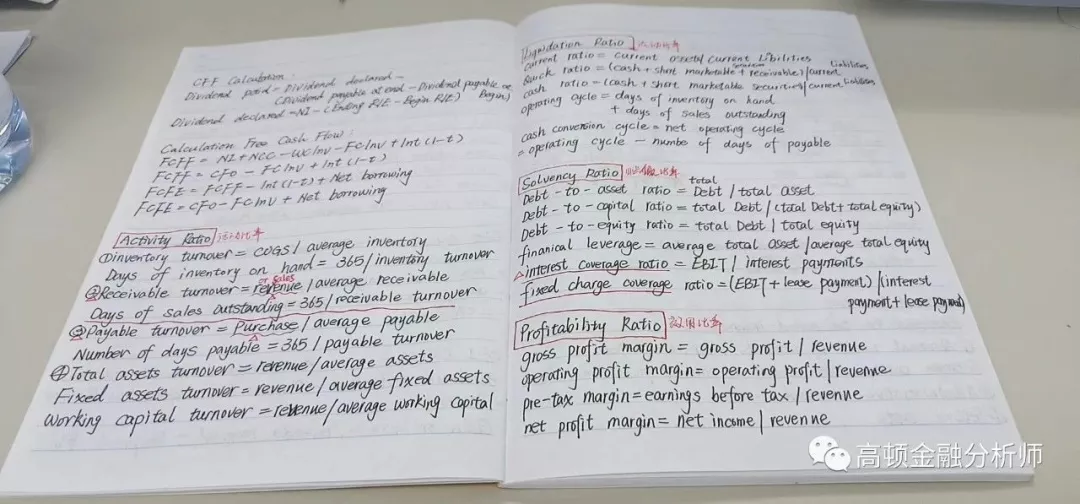 CFF Calculation:
Dividend paid = Dividend declared -
(Dividend payable at end - Dividend payable at Begin)
Dividend declared = NI - (Ending R/E - Begin R/E)
Calculation Free Cash Flow:
FCFF = NI + NCC - WCInv - FCInv + Int (1-t)
FCFF = CFO - FCInv + Int (1-t)
FCFE = FCFF - Int (1-t) + Net borrowing
FCFE = CFO - FCInv + Net borrowing
Activity Ratio 活动比率
①inventory turnover = COGS / average inventory
Days of inventory on hand = 365 / inventory turnover
②Receivable turnover = revenue or sales / average receivable
Days of sales outstanding = 365 / receivable turnover
③Payable turnover = Purchase / average payable
Number of days payable = 365 / payable turnover
④Total assets turnover = revenue / average assets
Fixed assets turnover = revenue / average fixed assets
Working capital turnover = revenue / average working capital
Liquidation Ratio
current ratio = current / current Libilities
Quick ratio = (cash + short marketable + receivable) / current liabilities
cash ratio = (cash + short marketable securities) / current liabilities
operating cycle = days of inventory on hand
+ days of sales outstanding
cash conversion cycle = net operating cycle
= operating cycle - numbe of days of payable
Solvency Ratio
Debt-to-asset ratio = total Debt / total asset
Debt-to-capital ratio = total Debt / (total Debt + total equity)
Debt-to-equity ratio = total Debt / total equity
finanical leverage = average total asset / average total equity
interest coverage ratio = EBIT / interest payments
fixed charge coverage ratio = (EBIT + lease payment) / (interest
payment + lease payment)
Profitability Ratio
gross profit margin = gross profit / revenue
operating profit margin = operating profit / revenue
pre-tax margin = earnings before tax / revenue
net profit margin = net income / revenne
高顿金融分析师